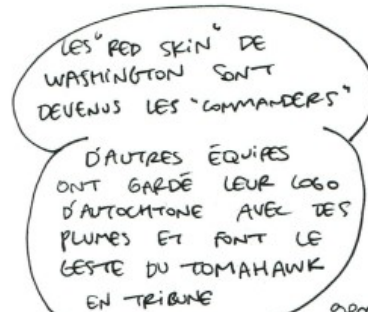 LES "RED SKIN" DE
WASHINGTON SONT
DEVENUS LES "COMMANDERS"
D'AUTRES ÉQUIPES
ONT GARDÉ LEUR LOGO
D'AUTOCHTONE AVEC DES
PLUMES ET FONT LE
GESTE DU TOMAHAWK
EN TRIBUNE